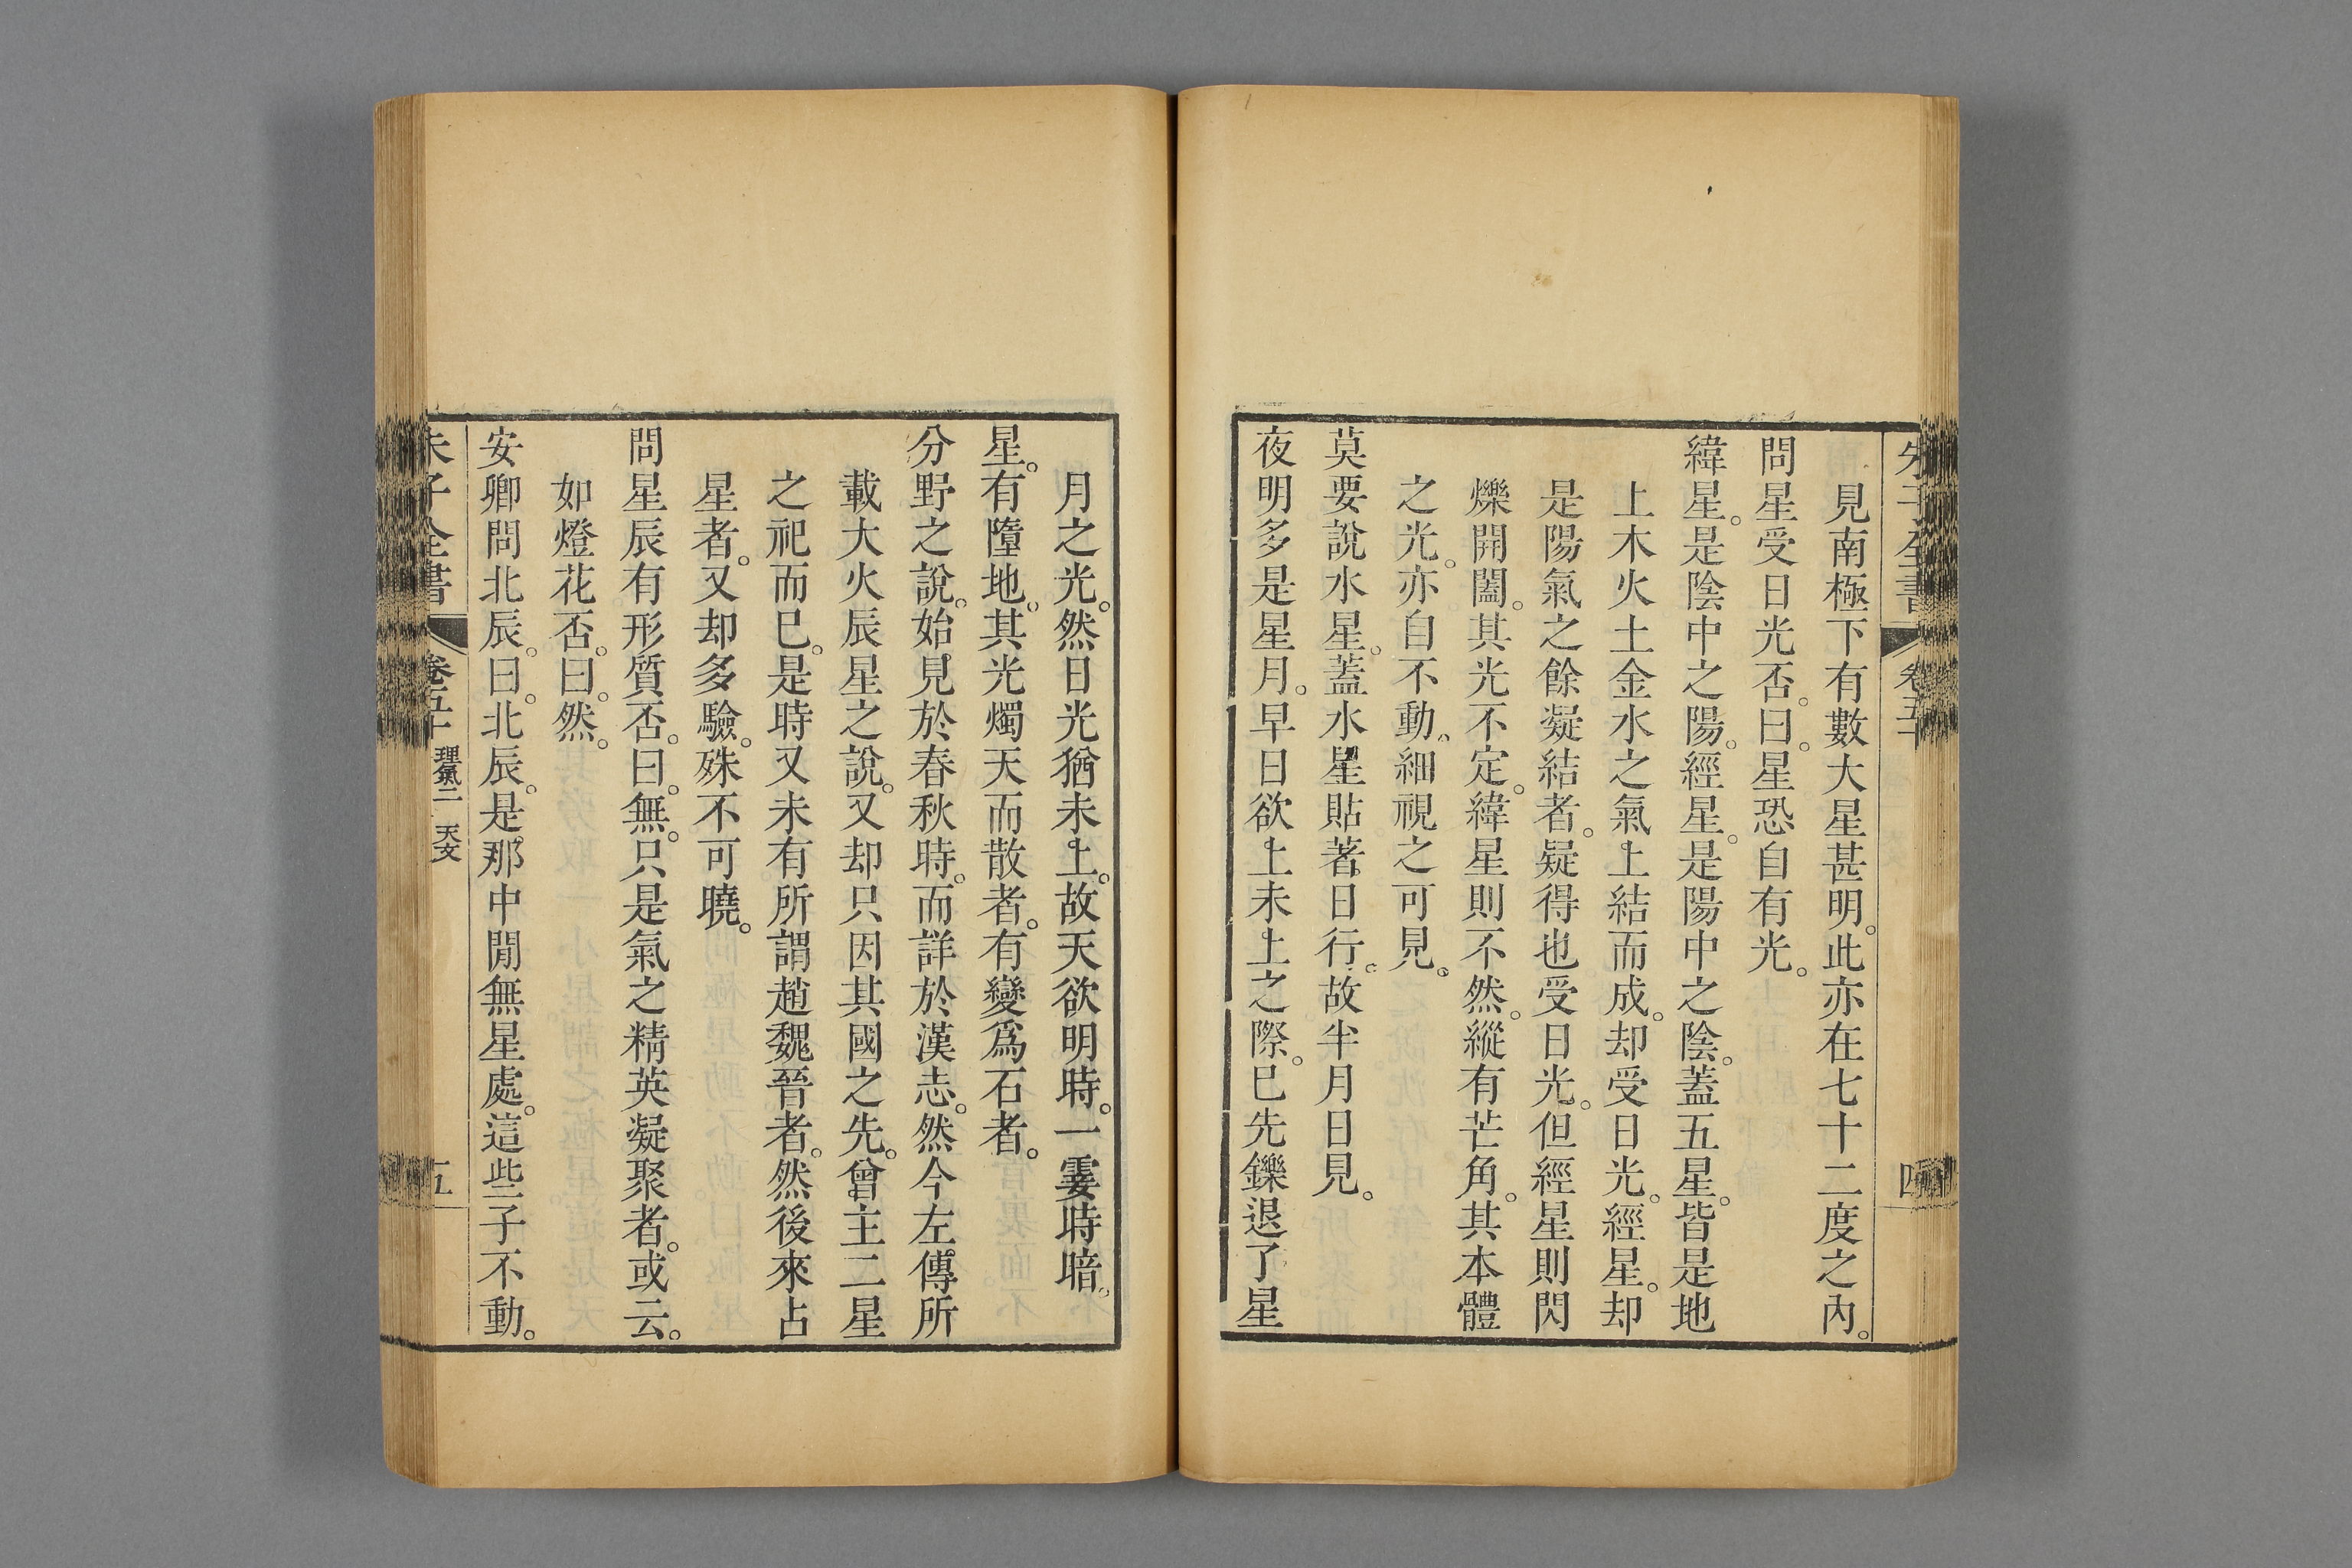 見南極下有數大星甚明。此亦在七十二度之內。
問星受日光否。曰。星恐自有光。
緯星。是陰中之陽。經星。是陽中之陰。蓋五星。皆是地
上木火土金水之氣上結而成。却受日光。經星。却
是陽氣之餘凝結者。疑得也受日光。但經星則閃
爍開闔。其光不定。緯星則不然。縱有芒角。其本體
之光。亦自不動。細視之可見。
莫要說水星。蓋水星貼著日行。故半月日見。
夜明多是星月。早日欲上未上之際。已先鑠退了星
月之光。然日光猶未上。故天欲明時。一霎時暗。
星。有墮地。其光燭天而散者。有變爲石者。
分野之說。始見於春秋時。而詳於漢志。然今左傳所
載大火辰星之說。又却只因其國之先。曾主二星
之祀而已。是時又未有所謂趙魏晉者。然後來占
星者。又却多驗。殊不可曉。
問星辰有形質否。曰。無。只是氣之精英凝聚者。或云。
如燈花否。曰。然。
安卿問北辰。曰。北辰。是那中閒無星處。這些子不動。
朱子全書 卷五十 理氣二 天文 五
朱子全書 卷五十 四